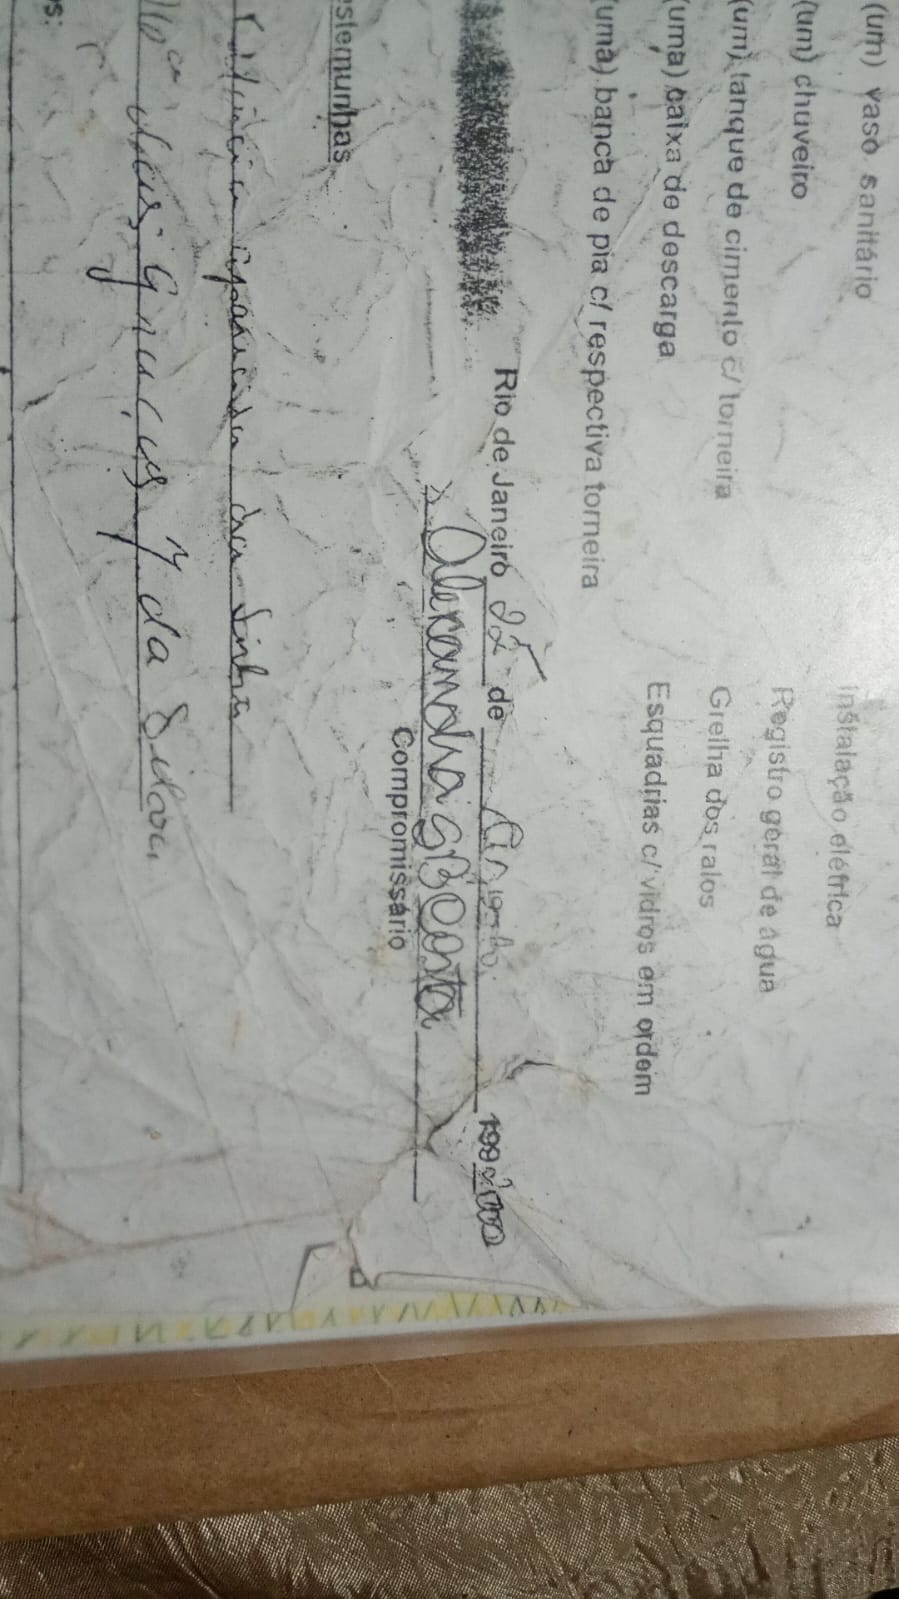 (um) vaso sanitário
Instalação elétrica
(um) chuveiro
Registro geral de água
(um) tanque de cimento c/ torneira
Grelha dos ralos
(uma) caixa de descarga
Esquadrias c/ vidros em ordem
(uma) banca de pia c/ respectiva torneira
Rio de Janeiro 22 de 199
Alexandra G B Costa
Compromissário
estemunhas
aparecida da Silva
das da Silva